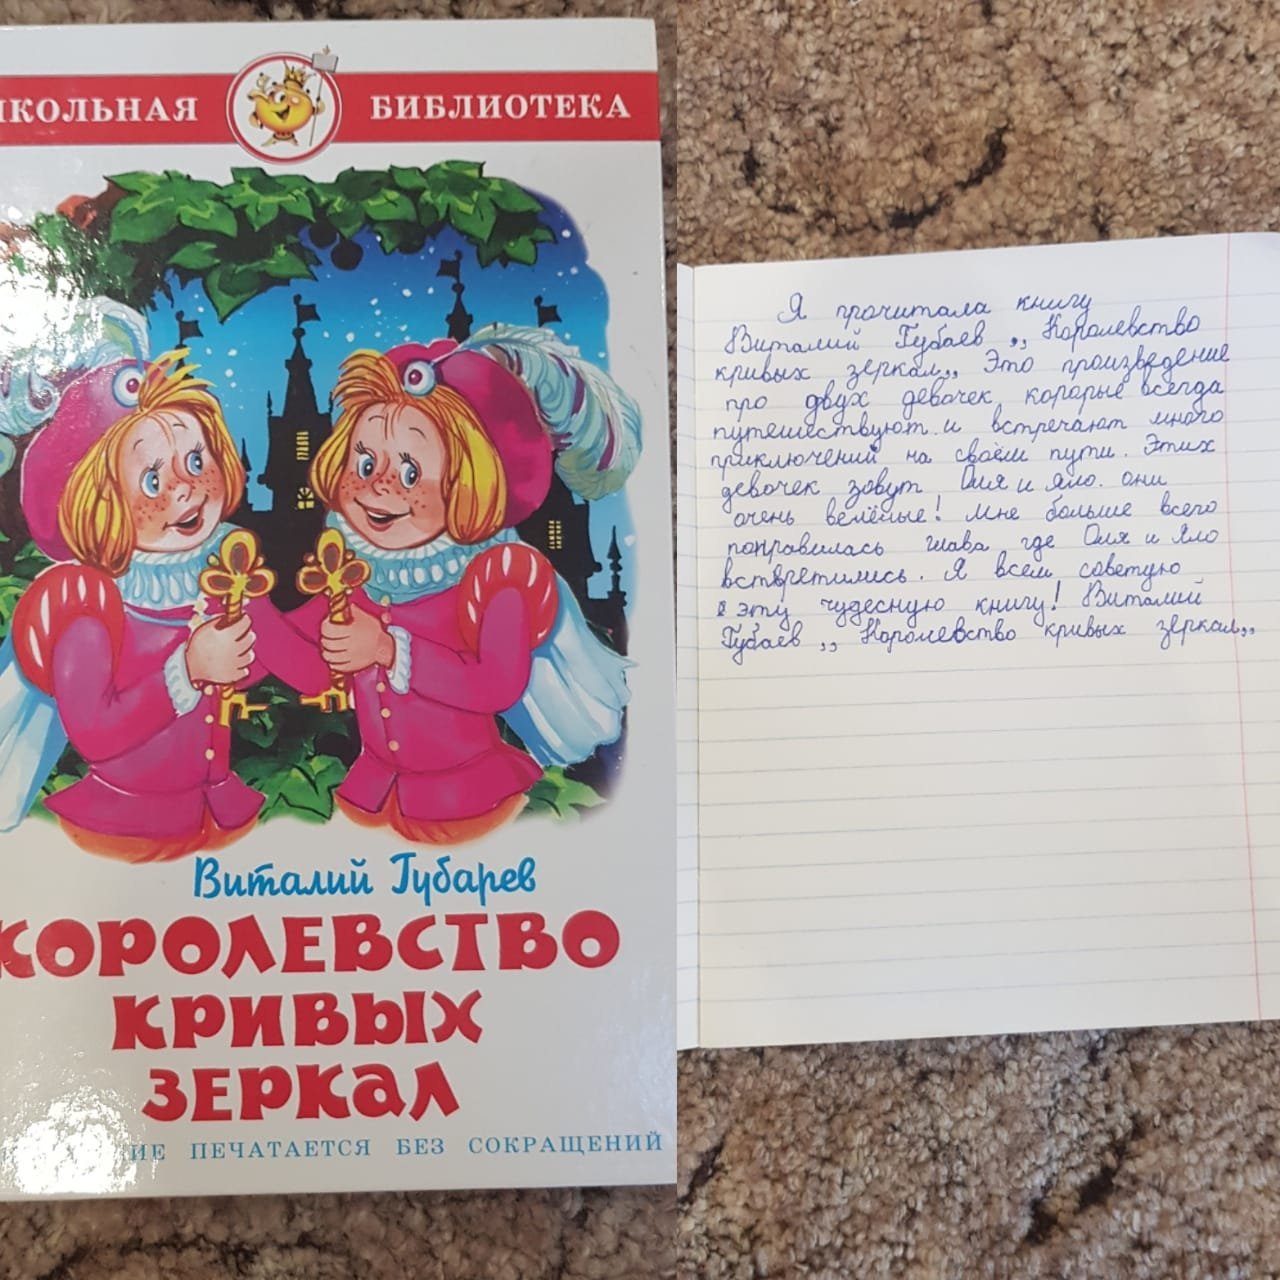 ШКОЛЬНАЯ БИБЛИОТЕКА
Виталий Губарев
КОРОЛЕВСТВО
КРИВЫХ
ЗЕРКАЛ
ПЕЧАТАЕТСЯ БЕЗ СОКРАЩЕНИЙ
Я прочитала книгу
Виталий Губаев ,, Королевство
кривых зеркал,, Это произведение
про двух девочек которые всегда
путешествуют и встречают много
приключений на своём пути. Этих
девочек зовут Оля и яло. они
очень весёлые! Мне больше всего
понравилась глава где Оля и Яло
вствретились. Я всем советую
эту чудесную книгу! Виталий
Губаев ,, Королевство кривых зеркал,,